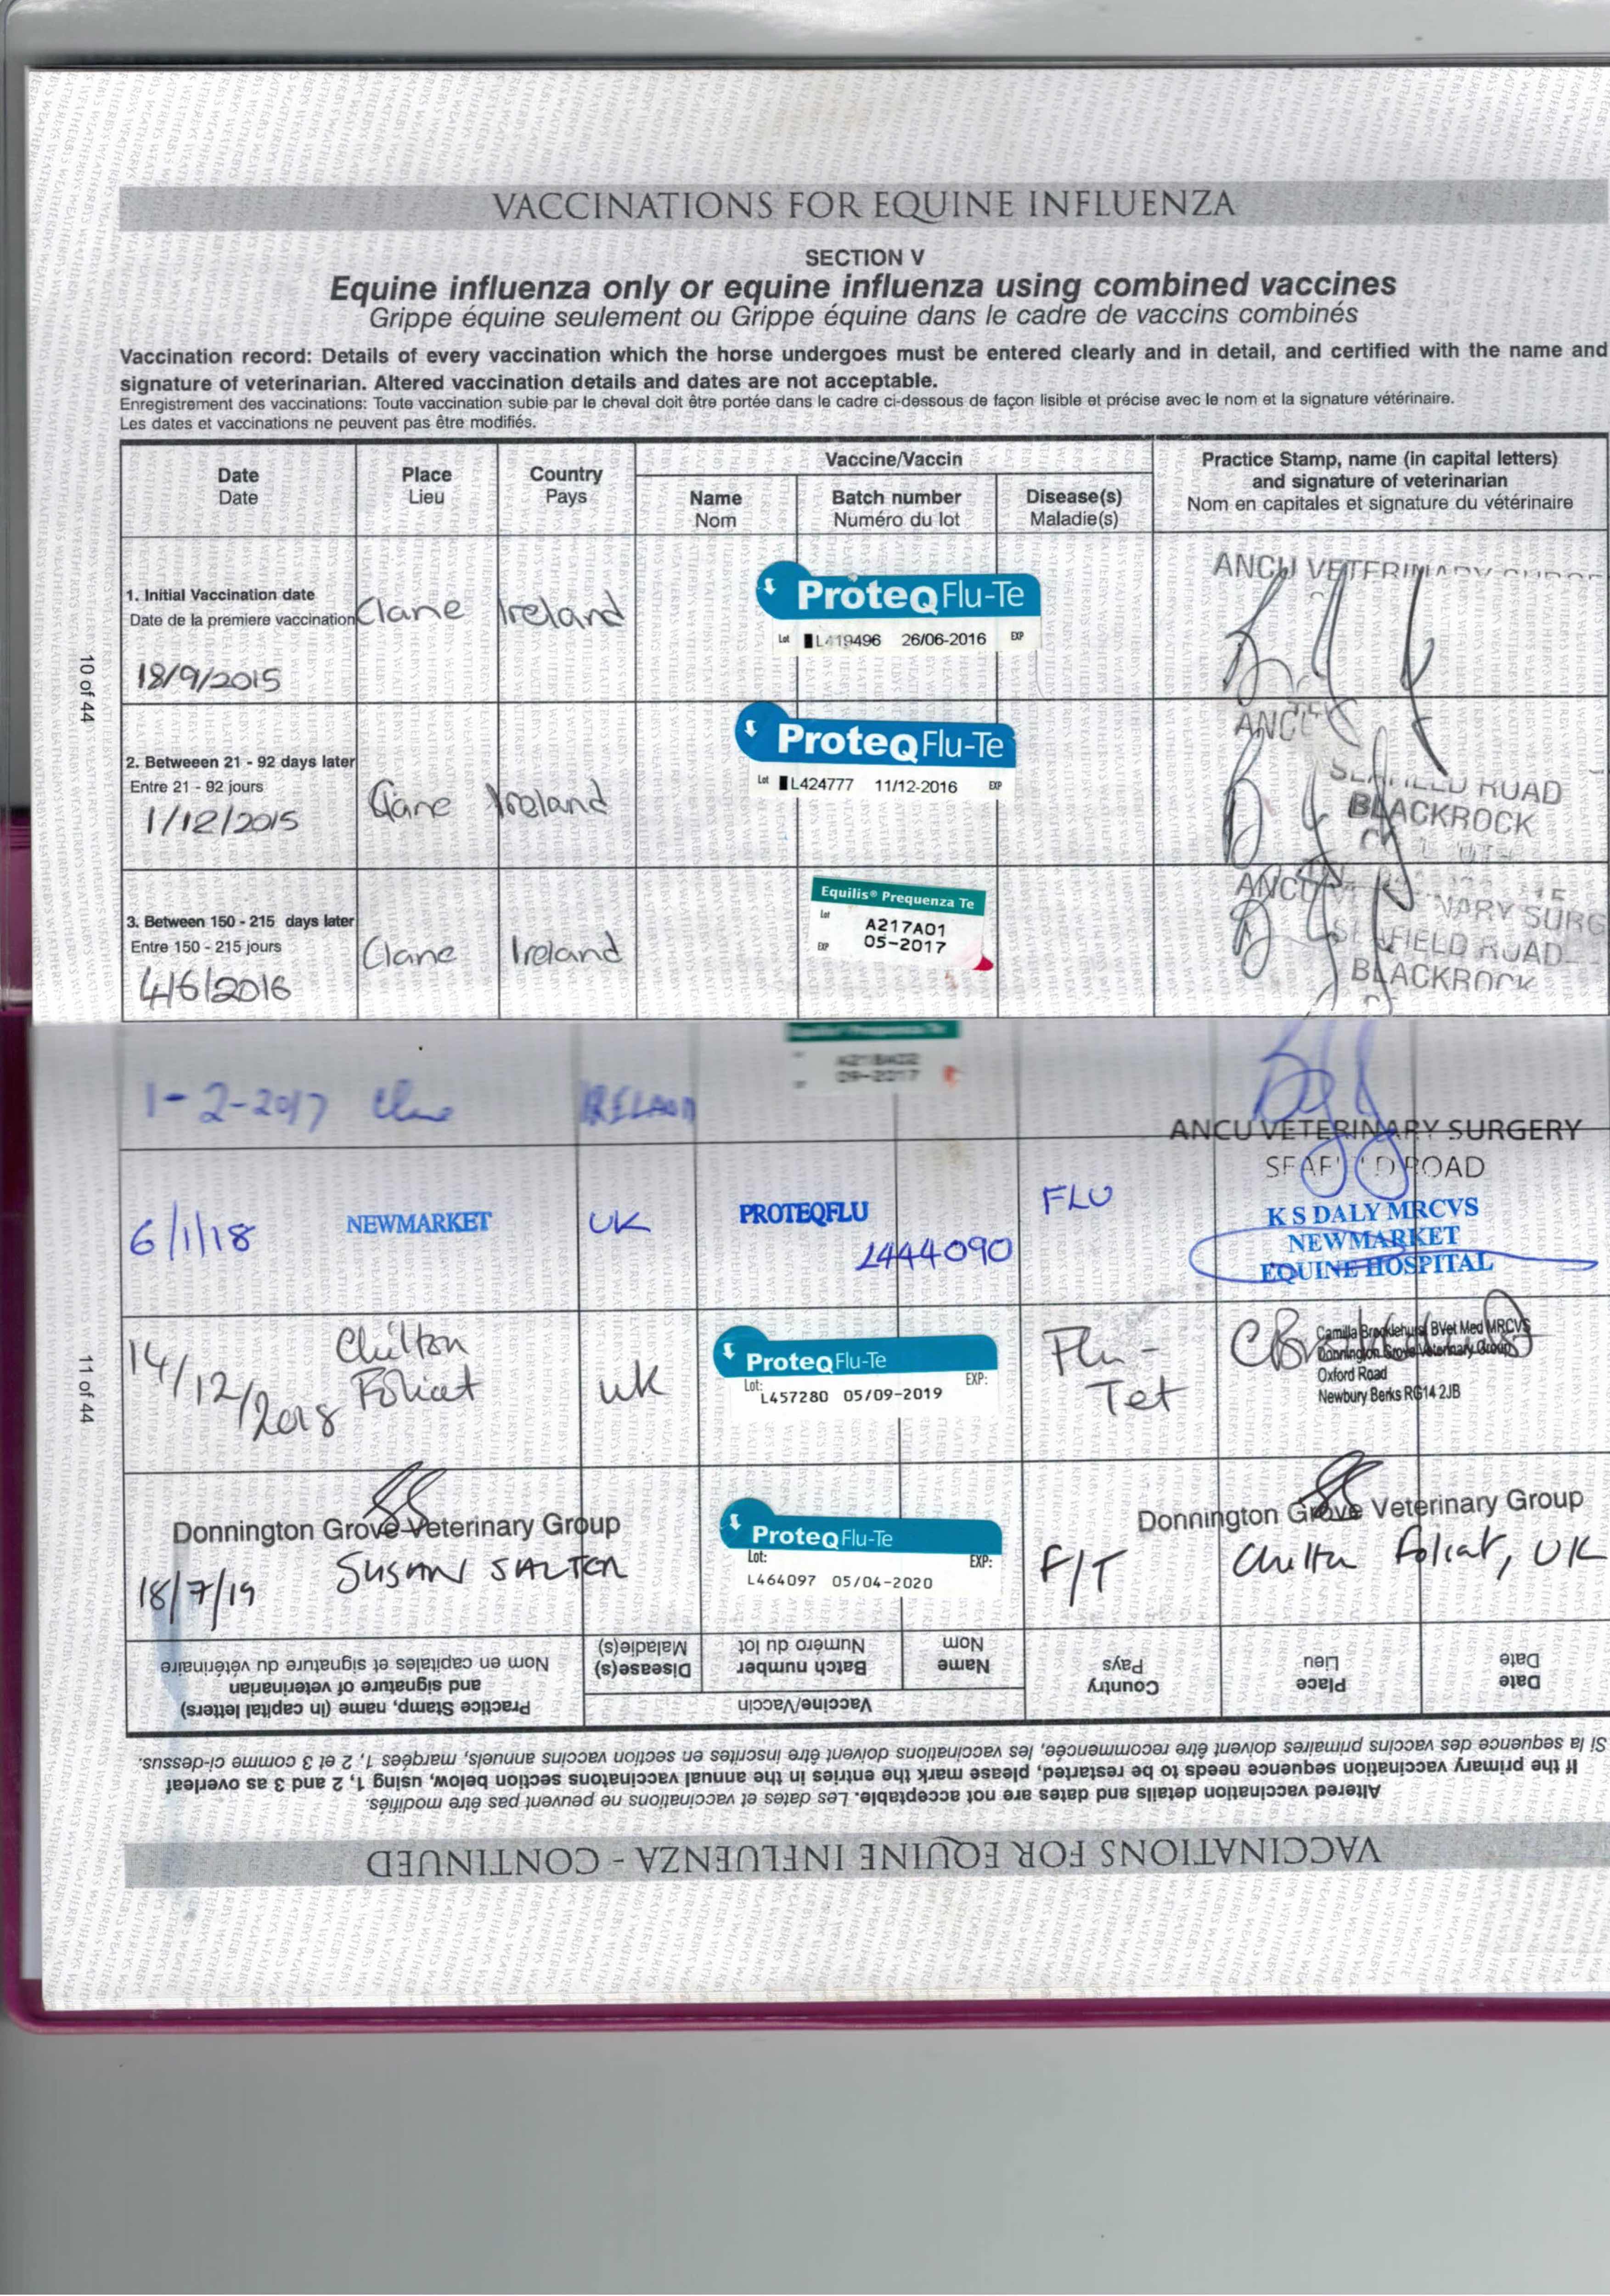 VACCINATIONS FOR EQUINE INFLUENZA
SECTION V
Equine influenza only or equine influenza using combined vaccines
Grippe équine seulement ou Grippe équine dans le cadre de vaccins combinés
Vaccination record: Details of every vaccination which the horse undergoes must be entered clearly and in detail, and certified with the name and
signature of veterinarian. Altered vaccination details and dates are not acceptable.
Enregistrement des vaccinations: Toute vaccination subie par le cheval doit être portée dans le cadre ci-dessous de façon lisible et précise avec le nom et la signature vétérinaire.
Les dates et vaccinations ne peuvent pas être modifiés.
Date
Date
Place
Lieu
Country
Pays
Vaccine/Vaccin
Name
Nom
Batch number
Numéro du lot
Disease(s)
Maladie(s)
Practice Stamp, name (in capital letters)
and signature of veterinarian
Nom en capitales et signature du vétérinaire
1. Initial Vaccination date
Date de la premiere vaccination
18/9/2015
Clane
Ireland
ProteQ Flu-Te
Lot L419496 26/06-2016 EXP
ANCU VETERINARY
2. Betweeen 21 - 92 days later
Entre 21 - 92 jours
1/12/2015
Clane
Ireland
ProteQ Flu-Te
Lot L424777 11/12-2016 EXP
ROAD
BLACKROCK
3. Between 150 - 215 days later
Entre 150 - 215 jours
4/6/2016
Clane
Ireland
Equilis® Prequenza Te
Lot A217A01
EXP 05-2017
SEAFIELD ROAD
BLACKROCK
10 of 44
1-2-2017
IRELAND
Equilis® Prequenza Te
09-2017
ANCU VETERINARY SURGERY
SEAFIELD ROAD
6/1/18
NEWMARKET
UK
PROTEQFLU
L444090
FLU
K S DALY MRCVS
NEWMARKET
EQUINE HOSPITAL
14/12/2018
Chilton
Foliat
UK
ProteQ Flu-Te
Lot: EXP:
L457280 05/09-2019
Flu-
Tet
Camilla Brocklehurst BVet Med MRCVS
Donnington Grove Veterinary Group
Oxford Road
Newbury Berks RG14 2JB
11 of 44
Donnington Grove Veterinary Group
SUSAN SALTER
18/7/19
ProteQ Flu-Te
Lot: EXP:
L464097 05/04-2020
F/T
Donnington Grove Veterinary Group
Chilton Foliat, UK
VACCINATIONS FOR EQUINE INFLUENZA - CONTINUED
Altered vaccination details and dates are not acceptable. Les dates et vaccinations ne peuvent pas être modifiés.
If the primary vaccination sequence needs to be restarted, please mark the entries in the annual vaccinatons section below, using 1, 2 and 3 as overleaf
Si la sequence des vaccins primaires doivent être recommencée, les vaccinations doivent être inscrites en section vaccins annuels, marqées 1, 2 et 3 comme ci-dessus.
Date
Date
Place
Lieu
Country
Pays
Vaccine/Vaccin
Name
Nom
Batch number
Numéro du lot
Disease(s)
Maladie(s)
Practice Stamp, name (in capital letters)
and signature of veterinarian
Nom en capitales et signature du vétérinaire